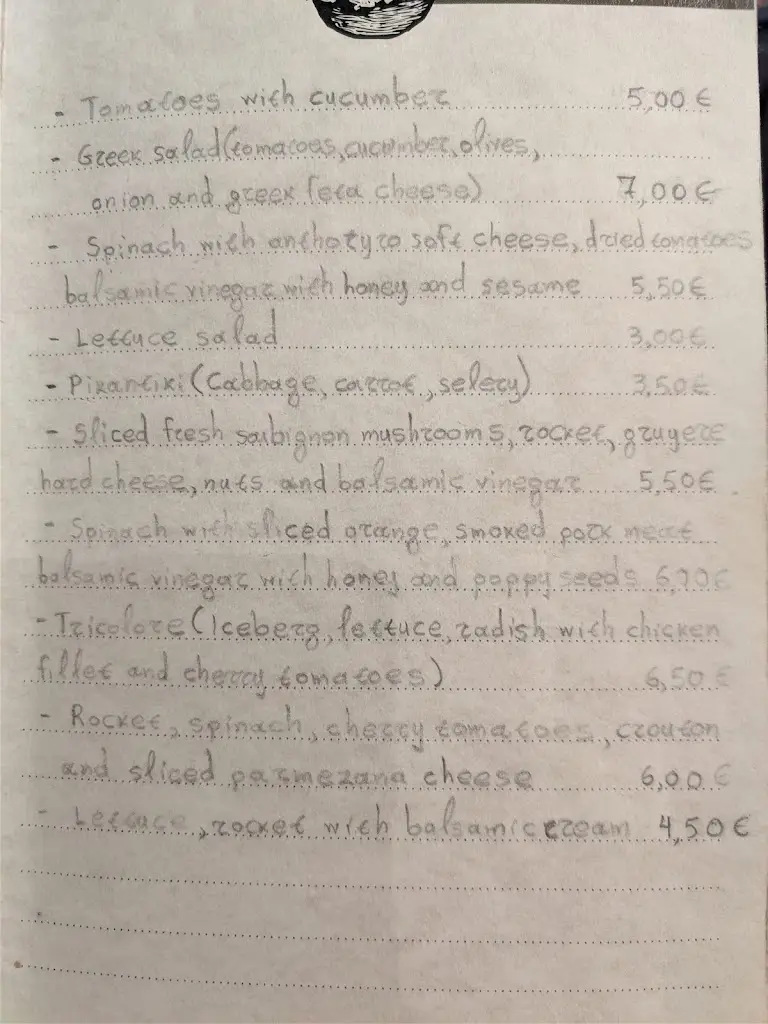 - Tomatoes with cucumber 5,00 €
- Greek salad (tomatoes, cucumber, olives,
onion and greek feta cheese) 7,00 €
- Spinach with anthotyro soft cheese, dried tomatoes
balsamic vinegar with honey and sesame 5,50 €
- Lettuce salad 3,00 €
- Pikantiki (Cabbage, carrot, selery) 3,50 €
- Sliced fresh saubignon mushrooms, rocket, gruyere
hard cheese, nuts and balsamic vinegar 5,50 €
- Spinach with sliced orange, smoked pork meat
balsamic vinegar with honey and poppy seeds
- Tricolore (Iceberg, lettuce, radish with chicken
fillet and cherry tomatoes) 6,50 €
- Rocket, spinach, cherry tomatoes, crouton
and sliced parmezana cheese 6,00 €
- Lettuce, rocket with balsamic cream 4,50 €